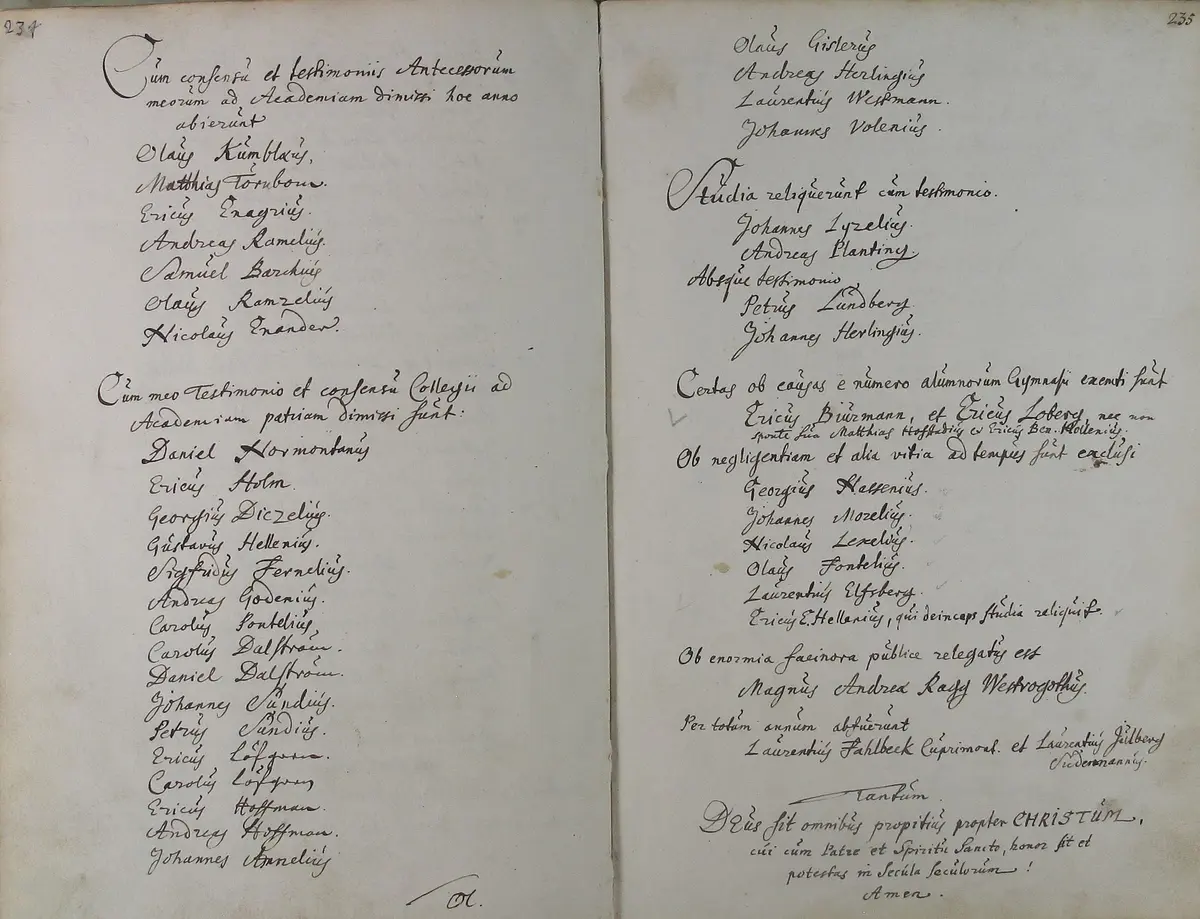 234
Cum consensu et testimoniis Antecessorum
meorum ad Academiam dimissi hoc anno
abierunt
Olaus Kumblæus,
Matthias Törnbom.
Ericus Enagrius.
Andreas Ramelius.
Samuel Barchius
Olaus Ramzelius
Nicolaus Enander.
Cum meo Testimonio et consensu Collegii ad
Academiam patriam dimissi sunt:
Daniel Normontanus
Ericus Holm.
Georgius Diczelius.
Gustavus Hellenius.
Sigfridus Fernelius.
Andreas Godenius.
Carolus Pontelius
Carolus Dalström.
Daniel Dalström.
Johannes Sundius.
Petrus Sundius.
Ericus Löfgren.
Carolus Löfgren
Ericus Hoffman.
Andreas Hoffman.
Johannes Annelius
Ol.
235
Olaus Gislerus
Andreas Herlingius
Laurentius Westmann.
Johannes Volenius.
Studia reliquerunt cum testimonio.
Johannes Lyzelius.
Andreas Planting.
Absque testimonio,
Petrus Lundberg.
Johannes Herlingius.
Certas ob causas e numero alumnorum Gymnasii exemti sunt
Ericus Biurmann, et Ericus Loberg, nec non
sponte sua Matthias Hoffstadius et Ericus Ben.
Ob negligentiam et alia vitia ad tempus sunt exclusi
Georgius Nassenius.
Johannes Mozelius.
Nicolaus Lexelius.
Olaus Fontelius.
Laurentius Elfsberg.
Ericus E. Hellenius, qui deinceps studia reliquit.
Ob enormia facinora publice relegatus est
Magnus Andreæ Ragg Westrogothus.
Per totum annum abfuerunt
Laurentius Fahlbeck Cuprimont. et Laurentius Julberg
Sudermannus.
Tantum.
DEus sit omnibus propitius propter CHRISTUM,
cui cum Patre et Spiritu Sancto, honor sit et
potestas in Secula Seculorum!
Amen.